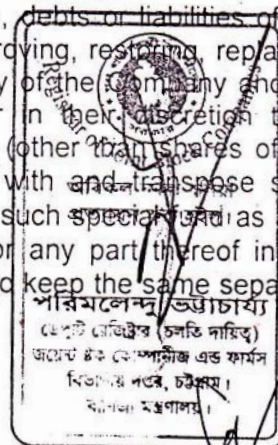 , debts or liabilities o
roving, restoring, repla
y of the Company and
r in their discretion t
(other than shares of
with and transpose s
such special fund as
or any part thereof in
d keep the same sepa
পরিমলেন্দু ভট্টাচার্য্য
ডেপুটি রেজিস্ট্রার (চলতি দায়িত্ব)
জয়েন্ট ষ্টক কোম্পানীজ এন্ড ফার্মস
বিভাগীয় দপ্তর, চট্টগ্রাম।
বাণিজ্য মন্ত্রণালয়।